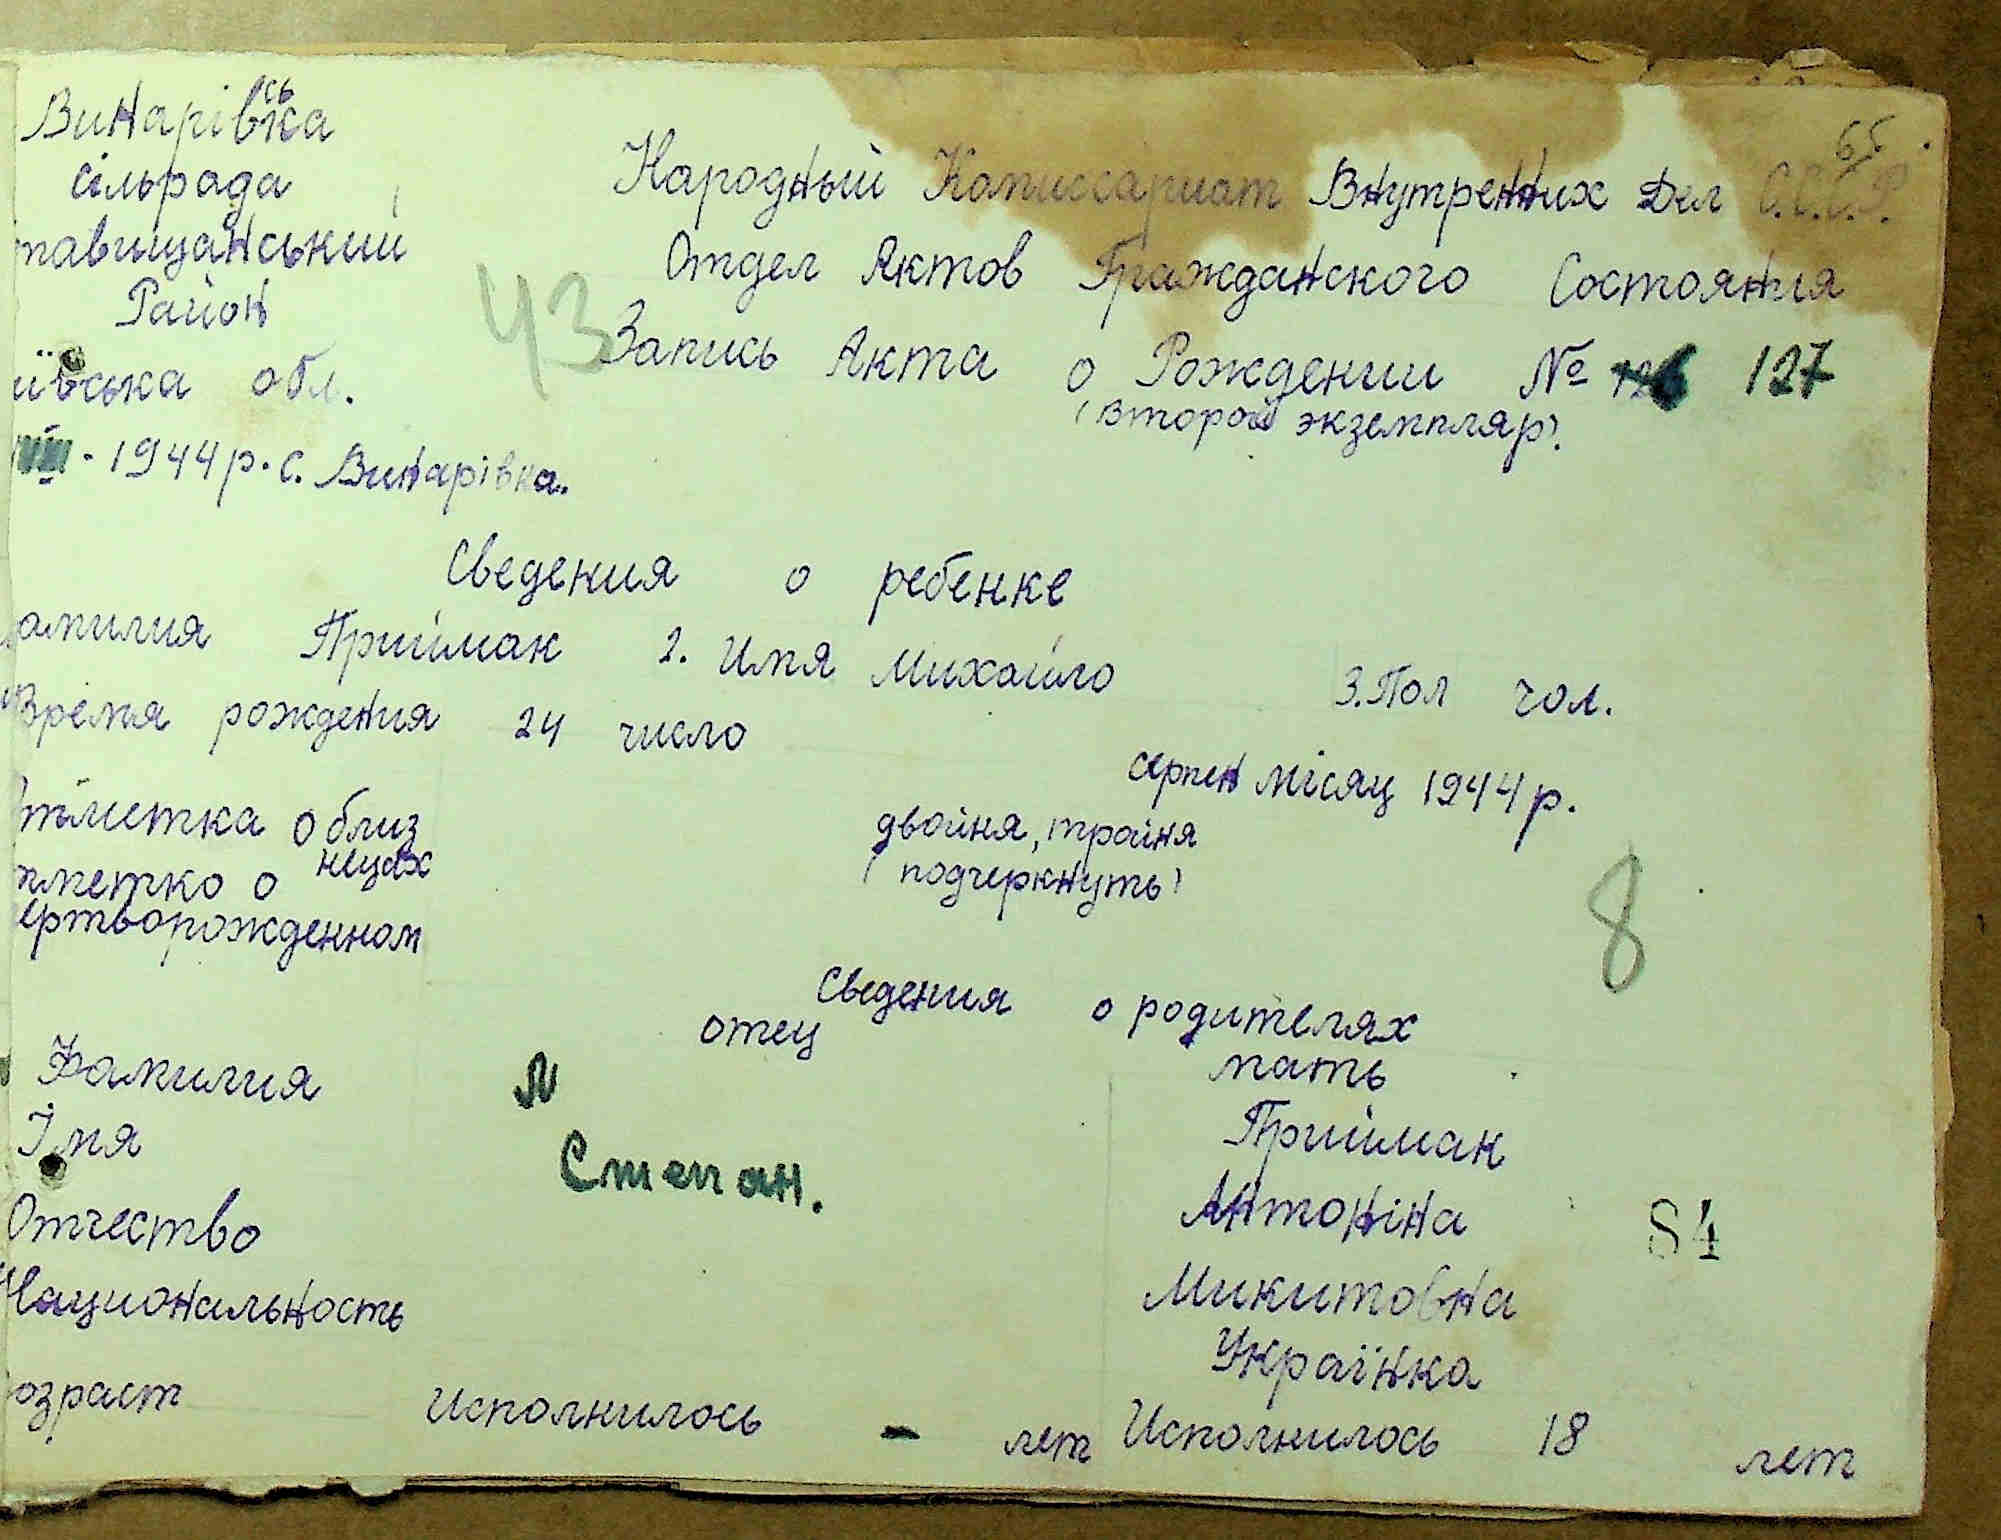 65
Винарівська
сільрада
тавищанський
Район
ївська обл.
VIII - 1944 р. с. Винарівка.
43
Народный Комиссариат Внутренних Дел С.С.С.Р.
Отдел Актов Гражданского Состояния
Запись Акта о Рождении № 127
(второй экземпляр).
Сведения о ребенке
амилия Приймак 2. Имя Михайло 3. Пол чол.
Время рождения 24 число
серпен місяц 1944 р.
тметка о близ
нецах
двойня, тройня
(подчеркнуть)
тметко о
ертворожденном
8
Сведения о родителях
отец
мать
Фамилия Приймак
Імя Степан. Антоніна
84
Отчество Микитовна
Национальность Українка
озраст Исполнилось - лет Исполнилось 18 лет